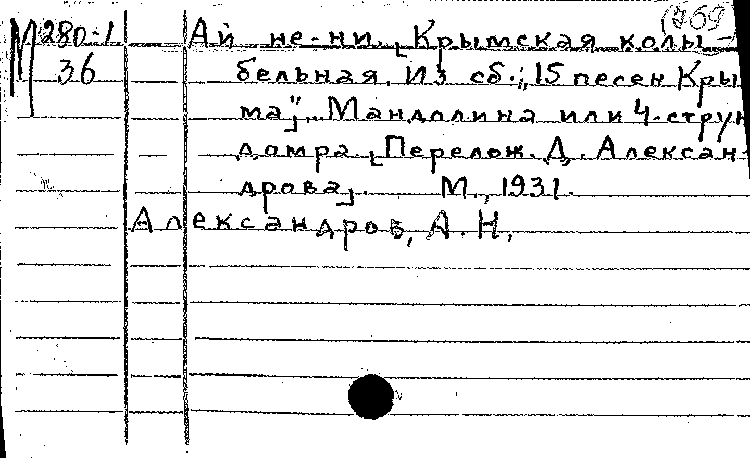 (769
М 280-1 Ай не-ни. [Крымская колы-
36 бельная. Из сб.: „15 песен Кры
ма"]. Мандолина или 4-струн
домра [Перелож. Д. Алексан-
дрова]. М., 1931.
Александров, А. Н.